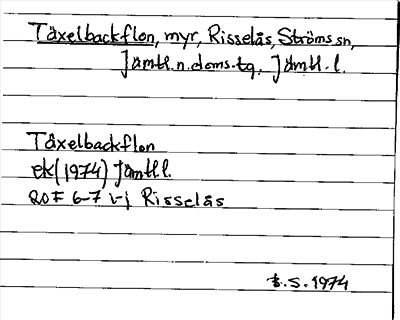 Tåxelbackflon, myr, Risselås, Ströms sn,
Jämtl. n. doms. tg. Jämtl. l.
Tåxelbackflon
ek (1974) Jämtl l.
20F 6-7 i-j Risselås
B.S. 1974